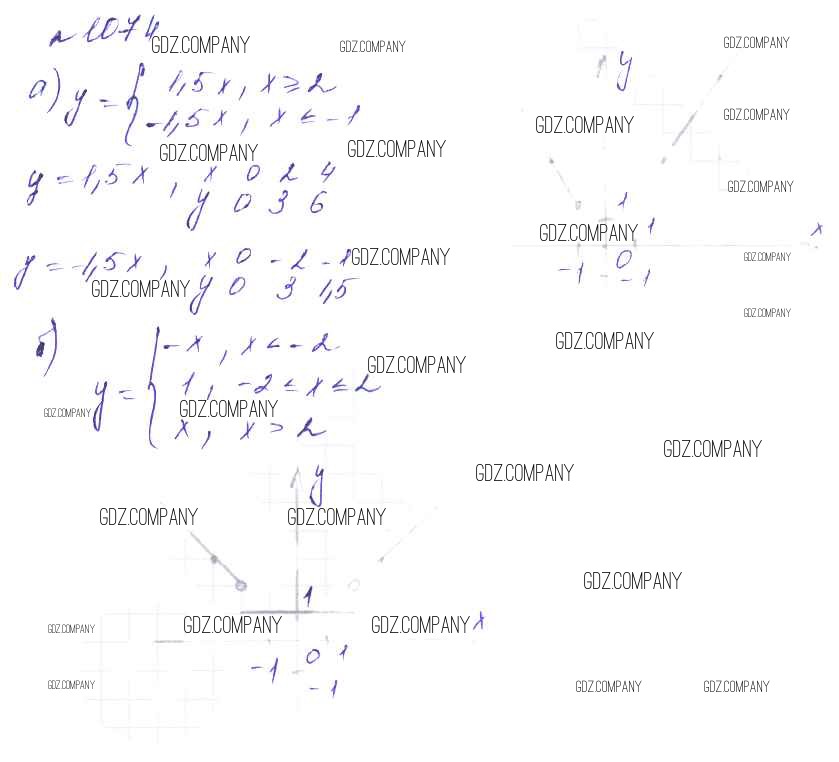 № 1074
а) y = { 1,5x, x ≥ 2
-1,5x, x ≤ -1
y = 1,5x, x 0 2 4
y 0 3 6
y = -1,5x, x 0 -2 -1
y 0 3 1,5
б)
y = { -x, x < -2
1, -2 ≤ x ≤ 2
x, x > 2
y
1
1
x
-1 0
-1
y
1
x
-1 0 1
-1
GDZ.COMPANY GDZ.COMPANY GDZ.COMPANY
GDZ.COMPANY GDZ.COMPANY
GDZ.COMPANY GDZ.COMPANY
GDZ.COMPANY
GDZ.COMPANY GDZ.COMPANY GDZ.COMPANY
GDZ.COMPANY
GDZ.COMPANY
GDZ.COMPANY
GDZ.COMPANY
GDZ.COMPANY GDZ.COMPANY
GDZ.COMPANY GDZ.COMPANY
GDZ.COMPANY GDZ.COMPANY
GDZ.COMPANY
GDZ.COMPANY GDZ.COMPANY GDZ.COMPANY
GDZ.COMPANY GDZ.COMPANY GDZ.COMPANY